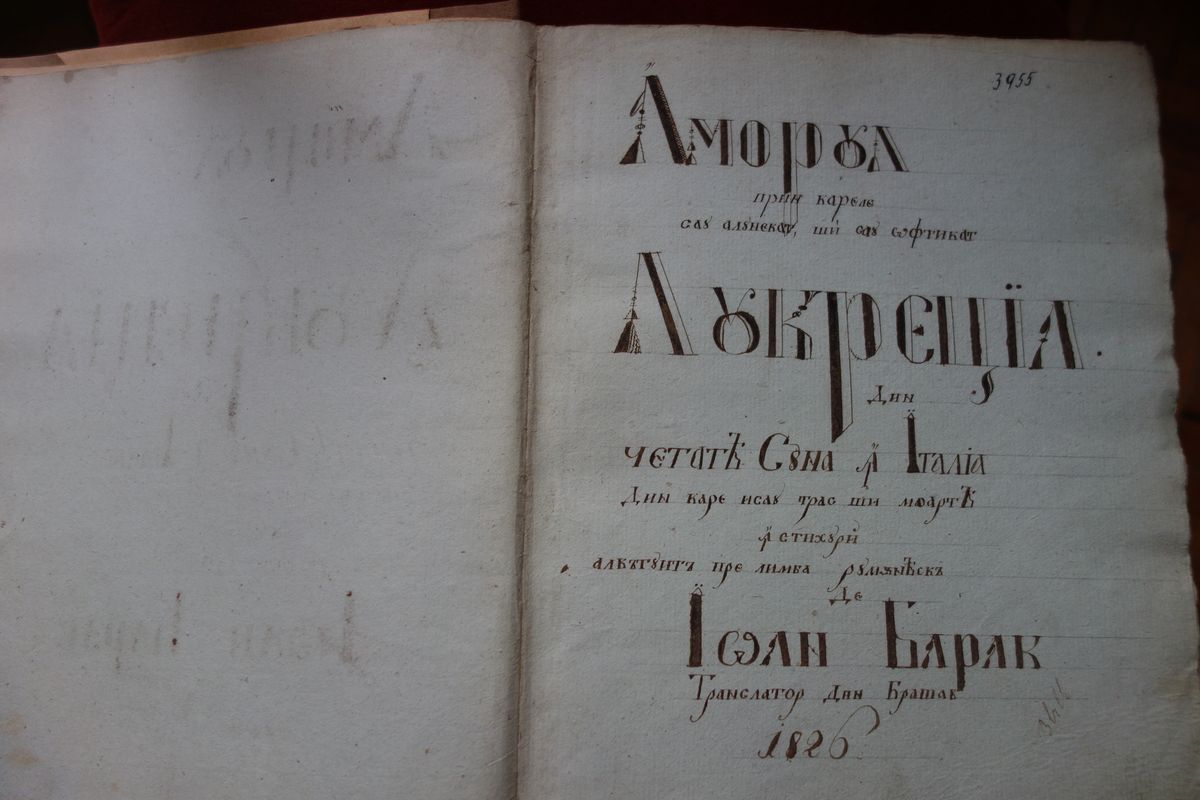 3955
Аморꙋл
прин кареле
сау алунекат, ши сау ѡфтикат
Лꙋкреціѧ.
Дин
четатѣ Сꙋна ꙟ Італіа
Дин каре исау трас ши моартѣ
ꙟ стихурй
алкътꙋитъ пре лимба румѫнѣскъ
Де
Іѡан Барак
Транслатор дин Брашав
1826